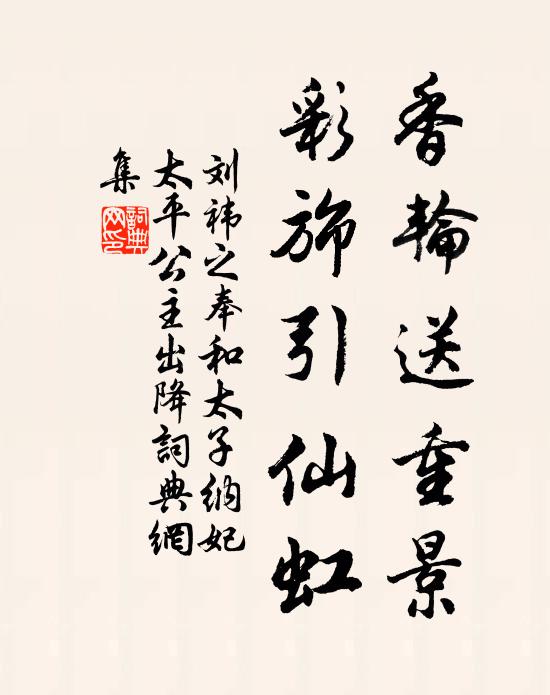 香輪送重景
彩旆引仙虹
刘禕之奉和太子納妃
太平公主出降詞典網
集
詞典
网印